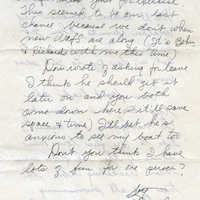 This seemed to be our last
chance because we don't when
new WAFS are along (It's Betty
& Richard with me this time)
Don wrote & asking for leave
I think he should get it
later on and you both
come down here - it'll save
space & time. I'll bet he's
anxious to see my boat too
Don't you think I have
lots of fun for one person?
Joy